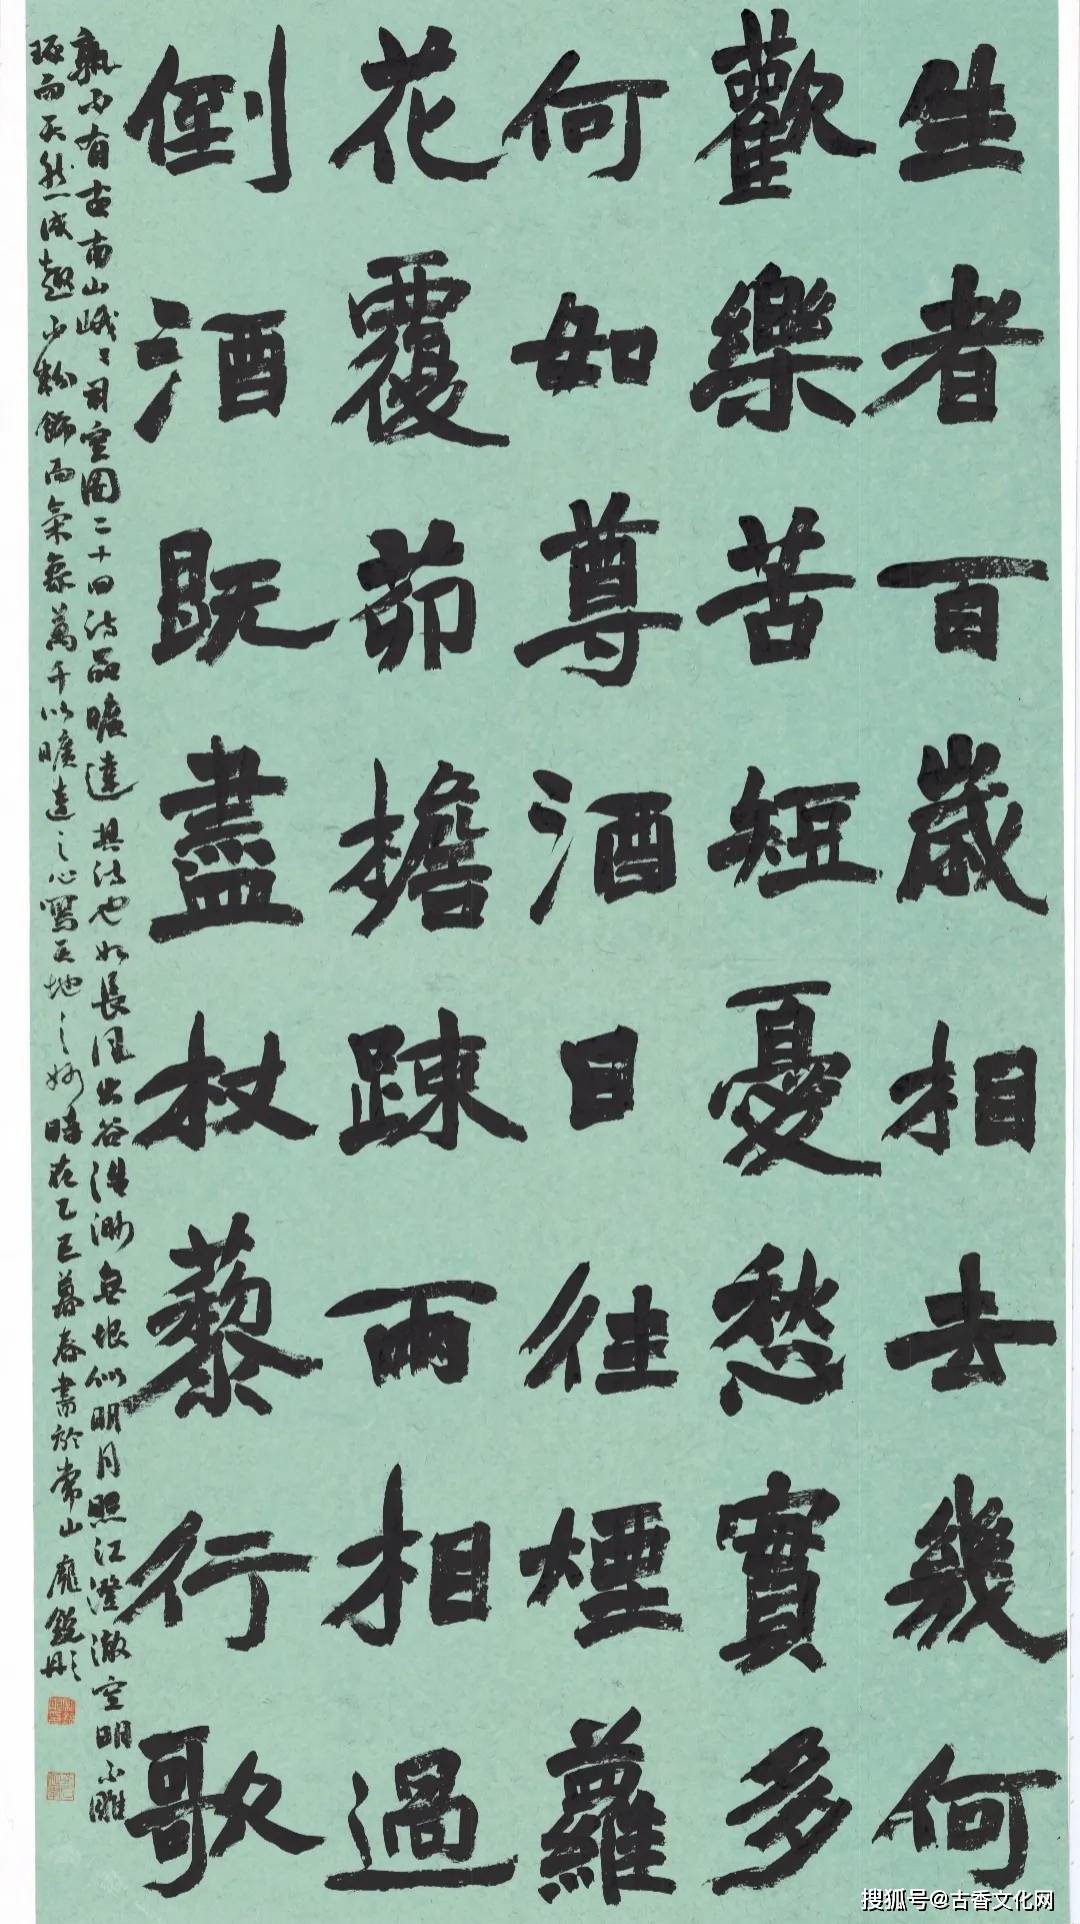 生者百歲相去幾何
歡樂苦短憂愁實多
何如尊酒日往煙蘿
花覆茆檐踈雨相過
倒酒既盡杖藜行歌
孰不有古南山峨々司空圖二十四詩品曠達其詩也如長風出谷浩渺無垠似明月照江澄澈空明不雕
琢而天然成趣不粉飾而氣象萬千以曠達之心寫天地之妙時在乙巳暮春書於常山龐銳彤
搜狐号@古香文化网